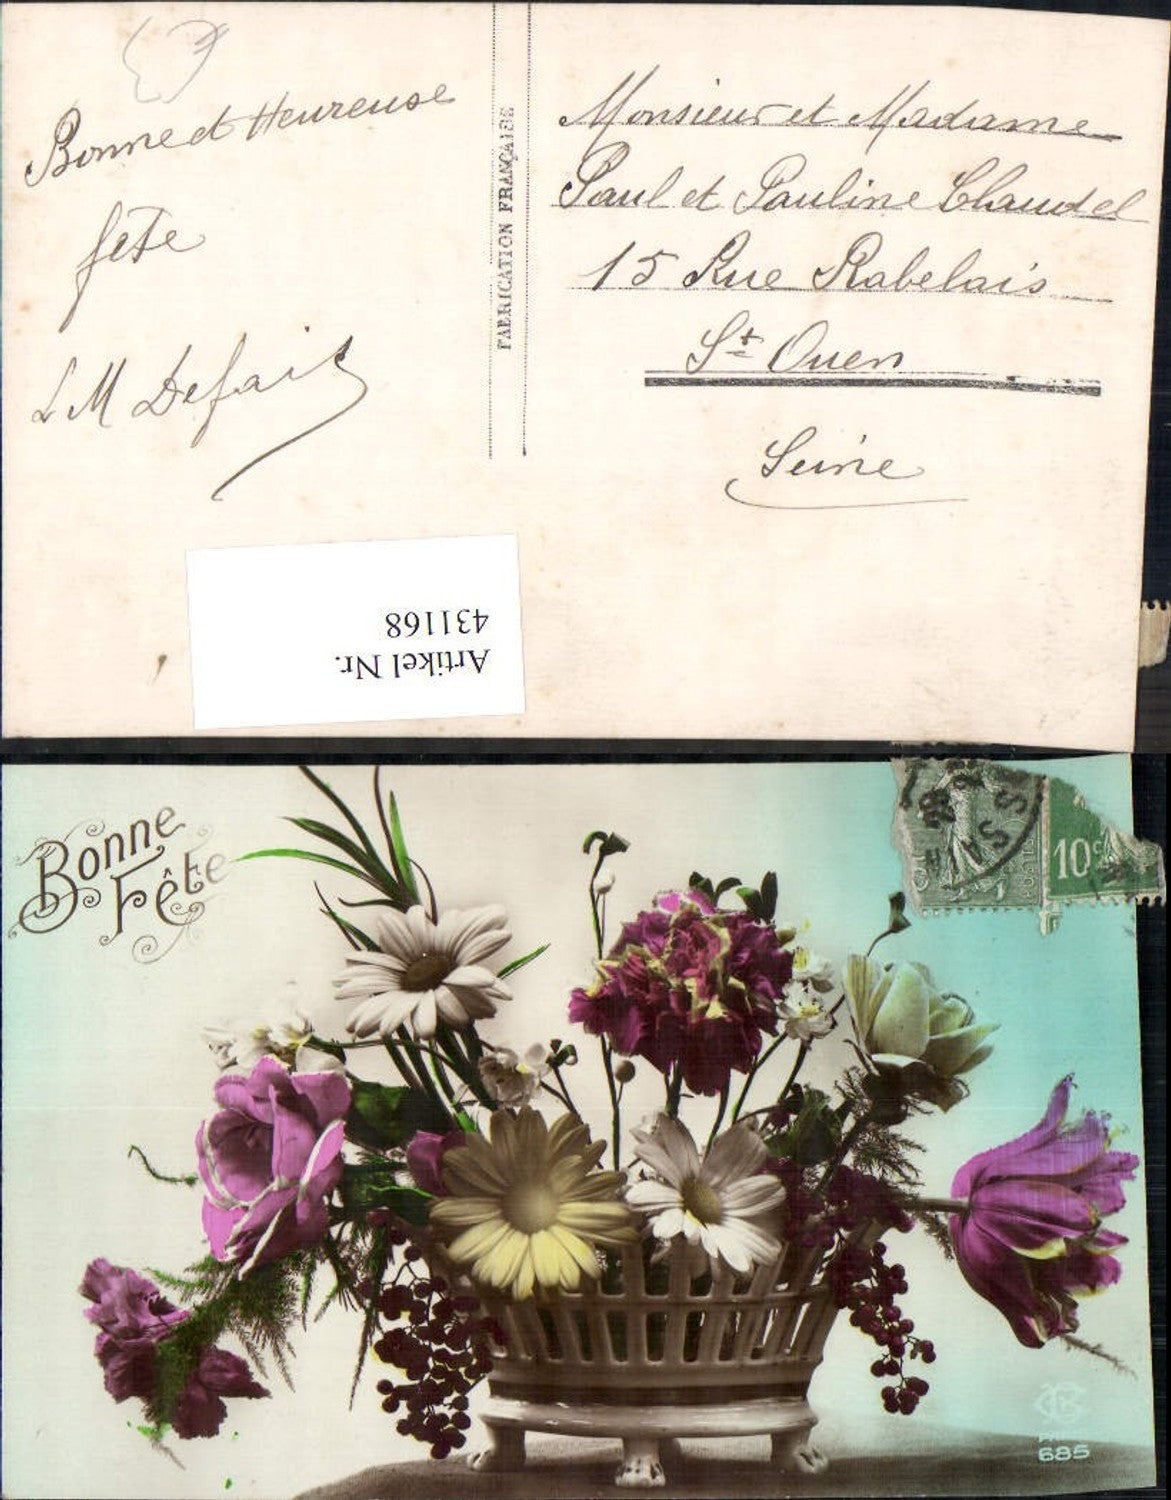 Bonne et Heureuse
fête
L M Defais
FABRICATION FRANÇAISE
Monsieur et Madame
Paul et Pauline Claudel
15 Rue Rabelais
St Ouen
Seine
Artikel Nr.
431168
Bonne
Fête
10c
685